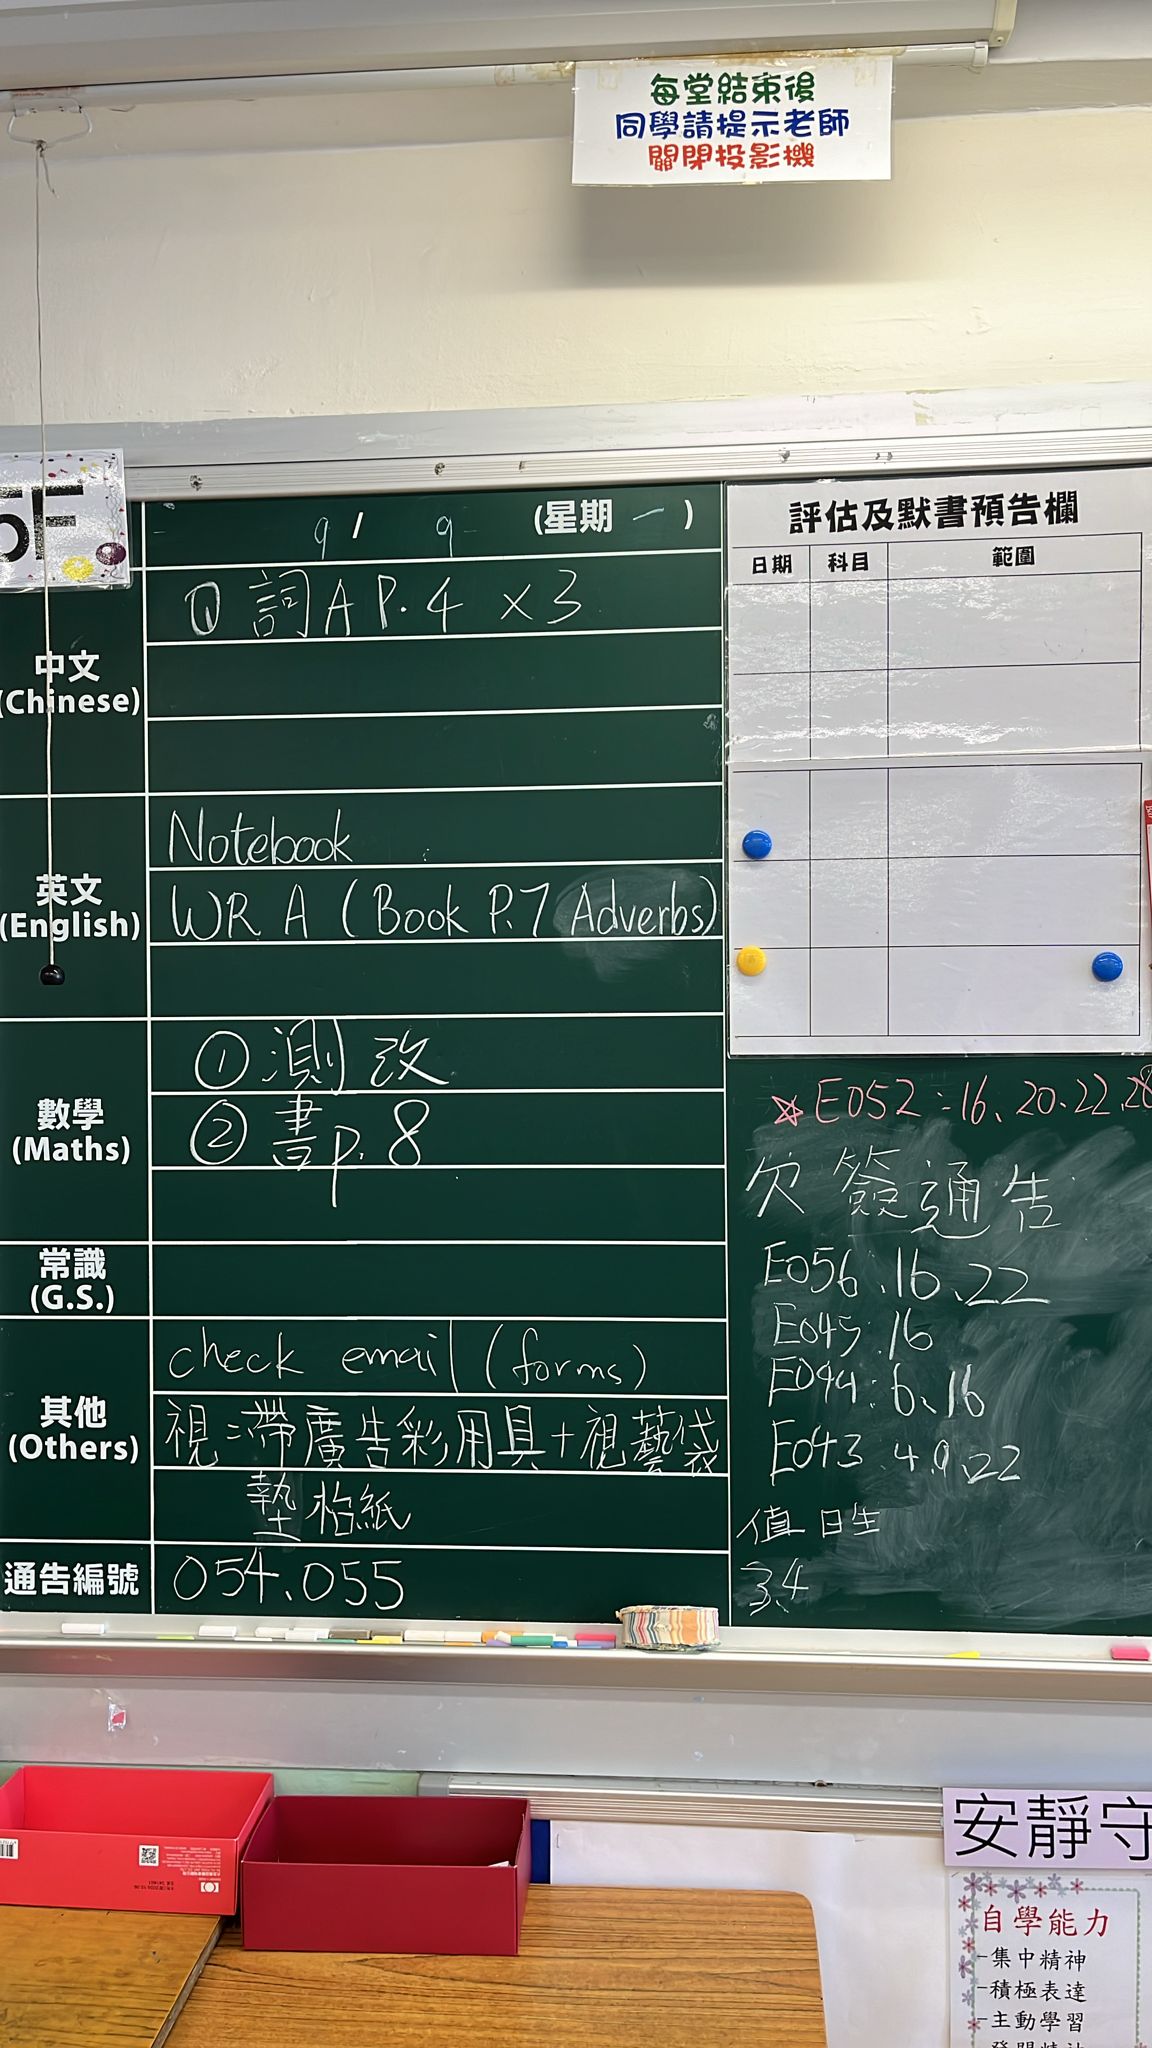 每堂結束後
同學請提示老師
關閉投影機
5F
9 / 9 (星期 一 )
中文
(Chinese)
① 詞A P.4 ×3
英文
(English)
Notebook
WR A (Book P.7 Adverbs)
數學
(Maths)
① 測改
② 書p.8
常識
(G.S.)
其他
(Others)
check email (forms)
視:帶廣告彩用具+視藝袋
墊枱紙
通告編號
054、055
評估及默書預告欄
日期 科目 範圍
E052:16、20、22、28
欠簽通告
E056:16、22
E045:16
E044:6、16
E043:4、9、22
值日生
3、4
安靜守
自學能力
-集中精神
-積極表達
-主動學習